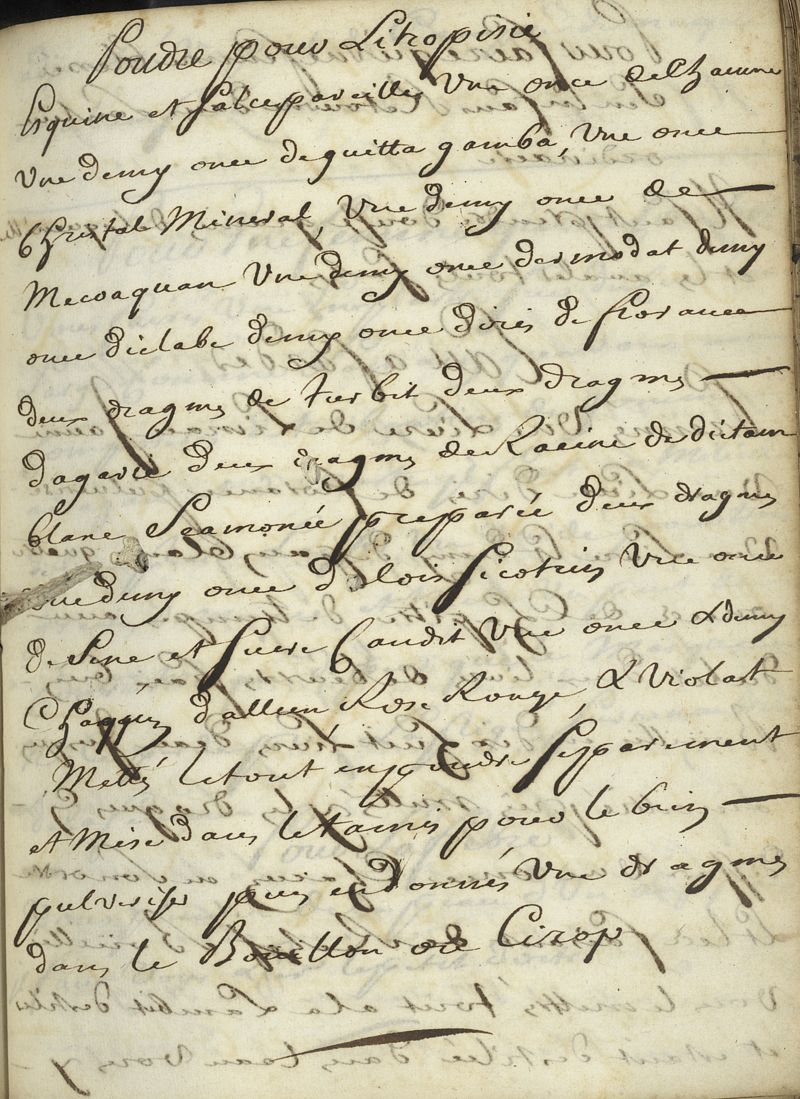 Poudre pour Litropisie
Esquine et salcepareilles Une once de Chacune
Une demy once de guitta gamba, Une once
Christal Mineral, Une demy once de
Mecoaquan Une demy once dermodat demy
once dielabe demy once diris de florance
deux dragmes de turbit deux dragmes
dagaric deux dragmes de Racine de dictam
blanc Scamonée preparée deux dragmes
une demy once d'alois Sicotrin Une once
de Sene et sucre Candit Une once & demy
Chaqun d'alleun Rose Rouge, & Violat
Mettés le tout en poudre separement
et Mise dans le tamis pour le bien
pulveriser puis en donnés Une dragmes
dans le Bouillon ou Cirop